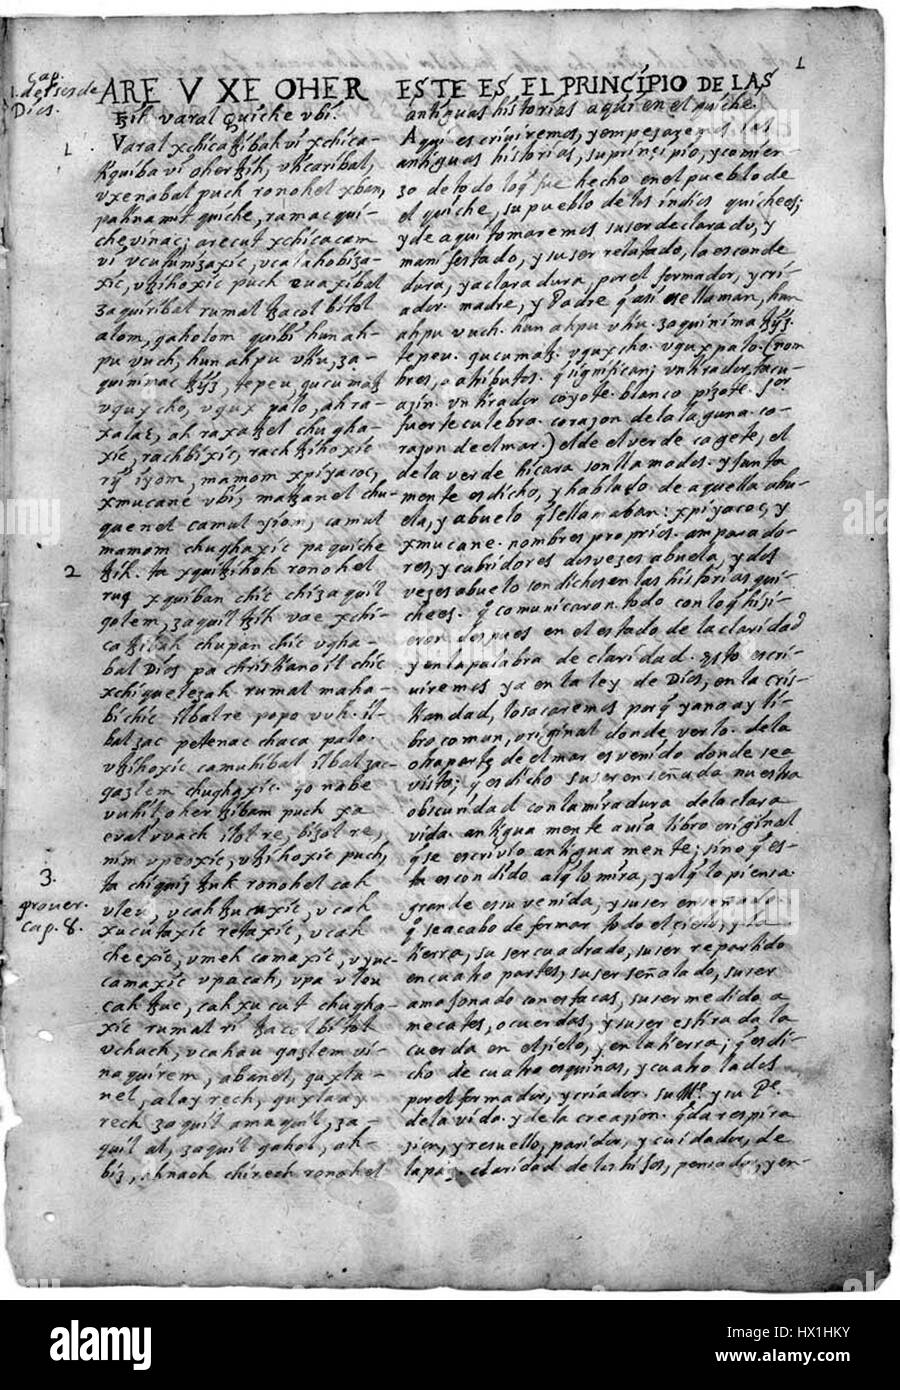 Cap.
1. de tres de
Dios.
1
ARE V XE OHER
tzih varal Quiche vbi.
1.
Varal xchicatzibah vi xchica-
tiquiba vi oher tzih, vticaribal,
vxenabal puch ronohel xban,
pa tinamit quiche, ramac qui-
che vinac; arecut xchicacam
vi vcutunizaxic, vcalahobiza-
xic, vtzihoxic puch euaxibal
zaquiribal rumal tzacol bitol
alom, qaholom quibi hun ah-
pu vuch, hun ahpu vtiu, za-
quinimac tzijz, tepeu, qucumatz
vqux cho, vqux palo, ah ra-
xalac, ah raxatzel chugha-
xic, rach bixic, rach tzihoxic
rij iyom, mamom xpiyacoc,
xmucane vbi, matzanel chu-
quenel camul iyom, camul
mamom chughaxic pa quiche
2 tzih. ta xquitzihoh ronohel
ruq xquiban chic chi zaquil
qolem, zaquil tzih vae xchi-
catzibah chupan chic vgha-
bal Dios pa christianoil chic
xchiquelezah rumal maha-
bi chic ilbal re popo vuh. il-
bal zac petenac chaca palo.
vtzihoxic camuhibal ilbal zac-
qazlem chughaxic. go nabe
vuhil, oher tzibam puch xa
eval vvach ilol re, bizol re,
nim vpeoxic, vtzihoxic puch,
ta chiquis tzuk ronohel cah
3.
prouer.
cap. 8.
vleu, vcah tzucuxic, vcah
xucutaxic retaxic, vcah
cheexic, vmeh camaxic, vyuc
camaxic vpa cah, vpa vleu
cah tzuc, cah xucut chugha-
xic rumal ri tzacol bitol
vchuch, vcahau qazlem vi-
naquirem, abanel, quxla-
nel, alay rech, quxlaay
rech zaquil amaquil, za-
quil al, zaquil qahol, ah-
biz, ahnaoh chirech ronohel
ESTE ES EL PRINCIPIO DE LAS
antiguas historias aqui en el quiche.
Aqui escriuiremos, y empezaremos las
antiguas historias, su principio, y comien-
zo de todo lo q̃ fue hecho en el pueblo de
el quiche, su pueblo de los indios quichees;
y de aqui tomaremos su ser declarado, y
manifestado, y su ser relatado, la esconde
dura, y aclaradura, por el formador, y cri-
ador. madre, y Padre q̃ asi se llaman, hun
ahpu vuch. hun ahpu vtiu. zaquinima tzijz.
tepeu. qucumatz. vqux cho. vqux palo. (nom
bres, o atributos. q̃ significan; vn tirador, tacu-
azin. vn tirador coyote. blanco pizote. sor
fuerte culebra. corazon de la laguna. co-
razon de el mar.) el de el verde cagete, el
de la verde hicara son llamados. y junta
mente es dicho, y hablado de aquella abu-
ela, y abuelo q̃ se llamaban: xpiyacoc, y
xmucane. nombres proprios. amparado-
res, y cubridores dos vezes abuela, y dos
vezes abuelo son dichos en las historias qui-
chees. q̃ comunicaron todo con lo q̃ hizi-
eron despues en el estado de la claridad
y en la palabra de claridad. esto escri-
uiremos ya en la ley de Dios, en la cris-
tiandad, lo sacaremos porq̃ ya no ay li-
bro comun, original donde verlo. de la
otra parte de el mar es venido donde sea
visto; q̃ es dicho su ser enseñada nuestra
obscuridad con la miradura de la clara
vida. antiguamente auia libro original
q̃ se escrivio antiguamente; sino q̃ es-
ta escondido al q̃ lo mira, y al q̃ lo piensa.
grande es su venida, y su ser enseñado.
q̃ se acabo de formar todo el cielo, y la
tierra, su ser cuadrado, su ser repartido
en cuatro partes, su ser señalado, su ser
amojonado con estacas, su ser medido a
mecates, o cuerdas, y su ser estirada la
cuerda en el zielo, y en la tierra; q̃ es di-
cho de cuatro esquinas, y cuatro lados
por el formador, y criador. su Me. y su Pe.
de la vida. y de la creazion. q̃ da respira
zion, y resuello, paridor, y cuidador, de
la paz, claridad de los hijos, pensador, y en-
alamy
Image ID: HX1HKY
www.alamy.com